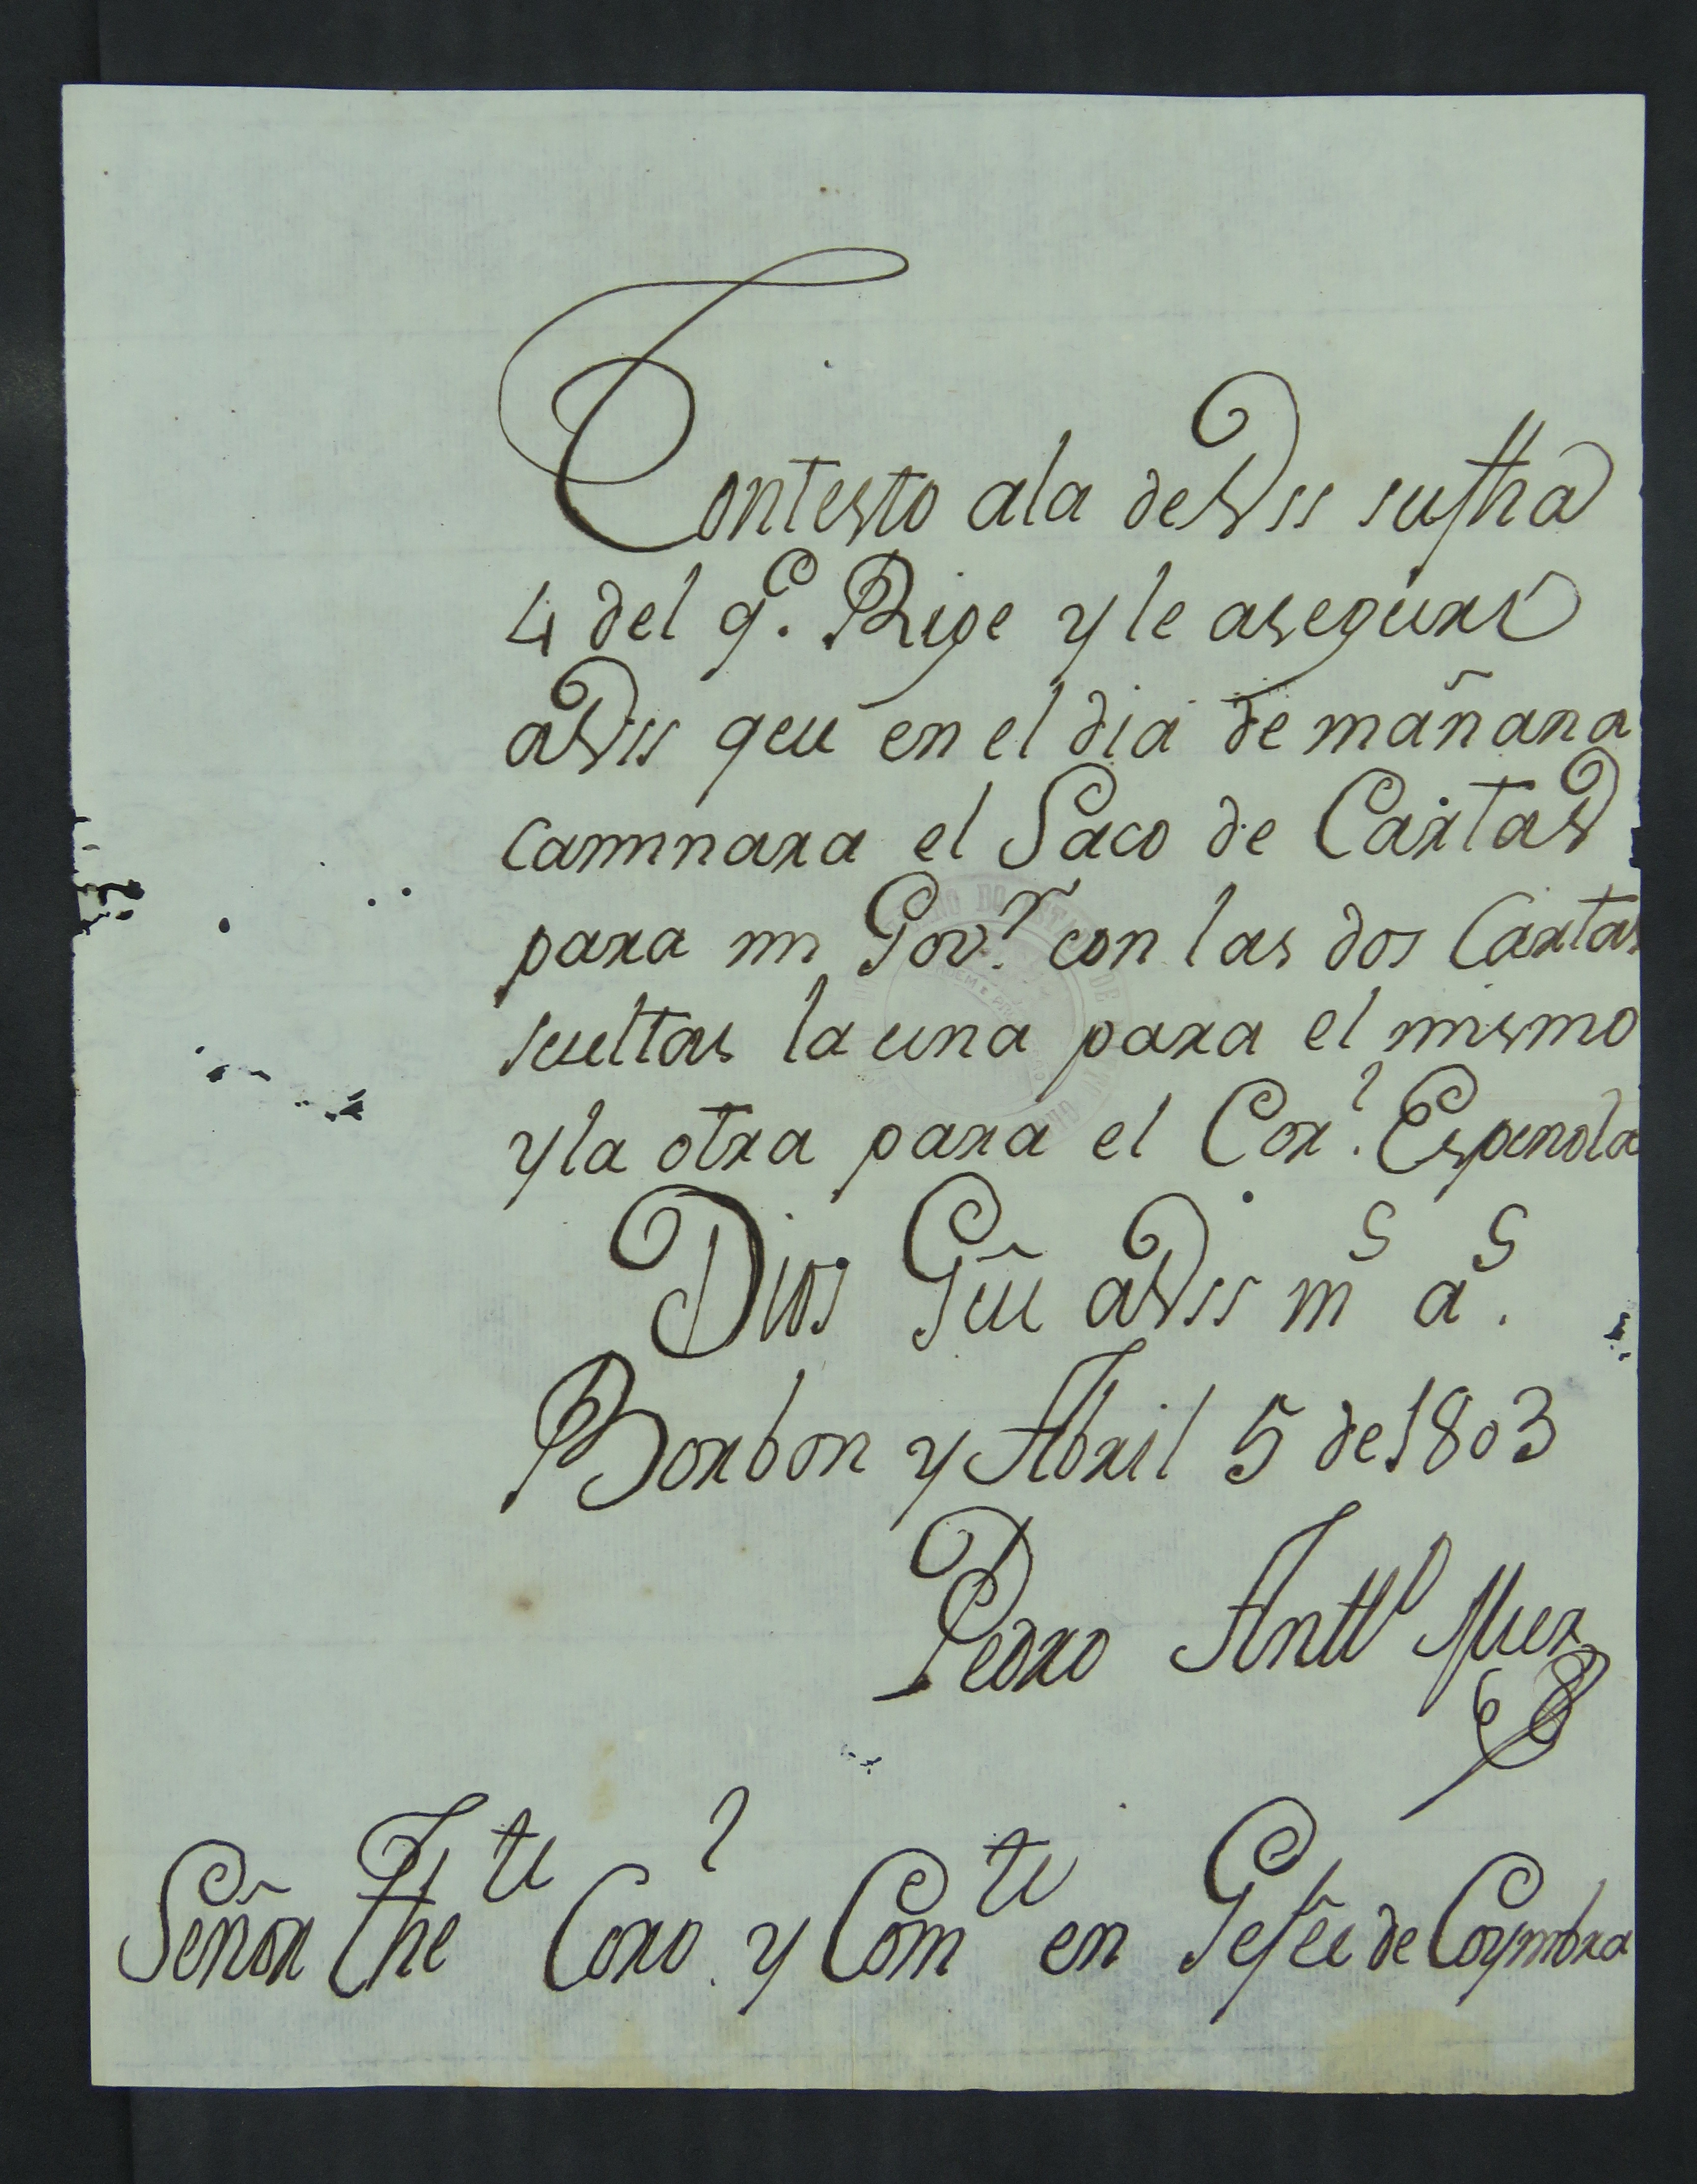 Contesto ala de Vss su fha
4 del q.e Rige y le aseguro
a Vss qeu en el dia de mañana
caminara el Saco de Cartas
para mi Gov.r con las dos Cartas
sueltas la una para el mismo
y la otra para el Cor.l Espinola
Dios Gũe a Vss ms as.
Borbon y Abril 5 de 1803
Pedro Antto Mier
Señor The te Coro.l y Comte en Gefee de Coymbra